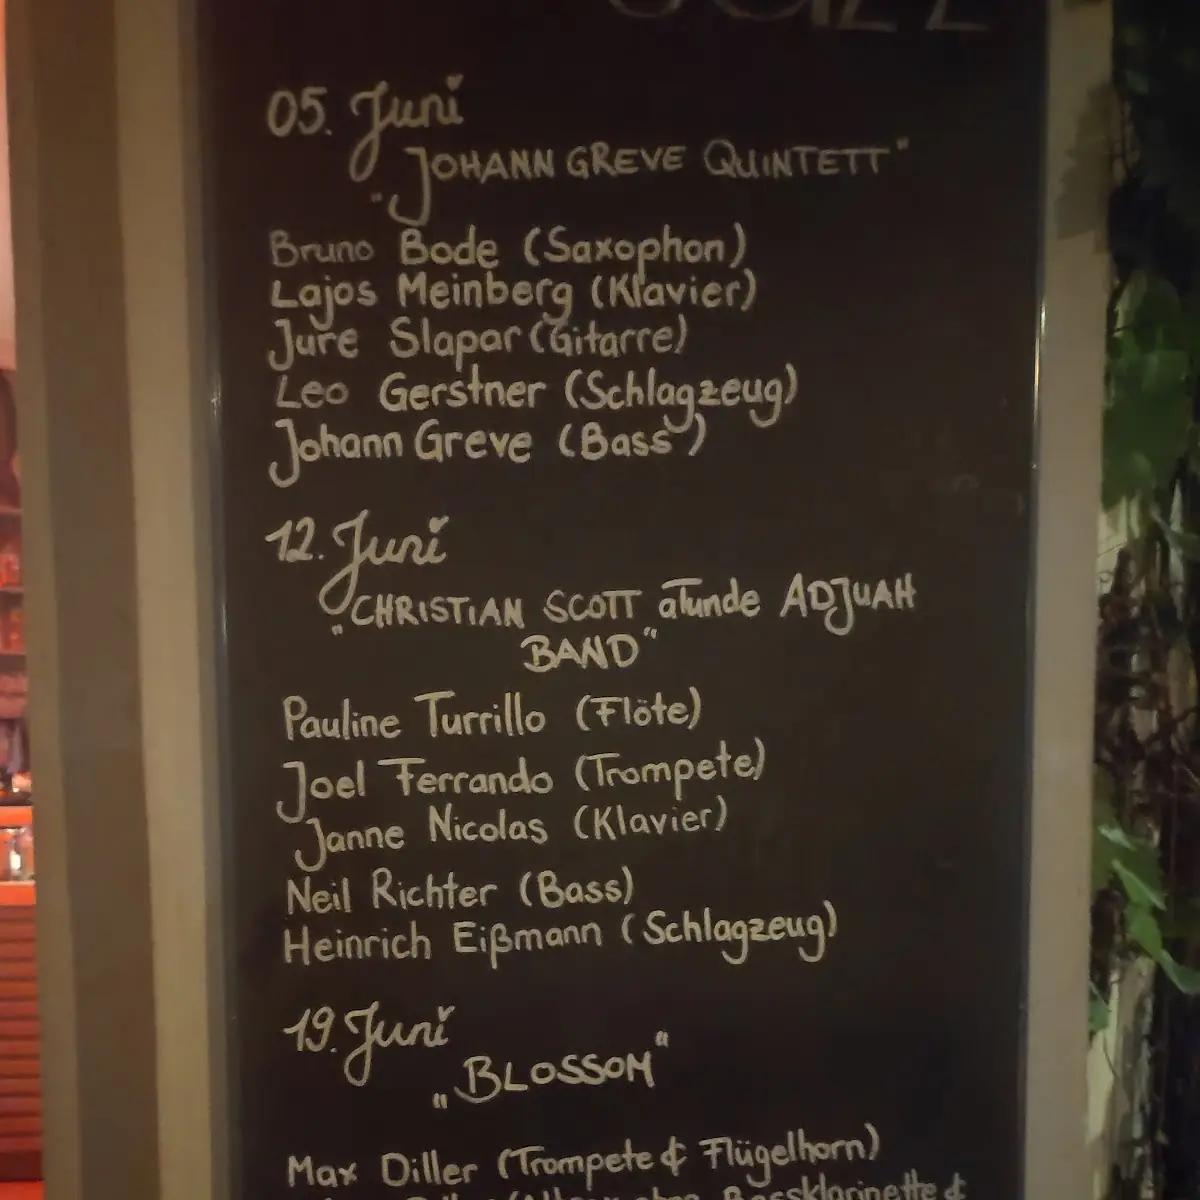 05. Juni
„JOHANN GREVE QUINTETT"
Bruno Bode (Saxophon)
Lajos Meinberg (Klavier)
Jure Slapar (Gitarre)
Leo Gerstner (Schlagzeug)
Johann Greve (Bass)
12. Juni
„CHRISTIAN SCOTT aTunde ADJUAH
BAND"
Pauline Turrillo (Flöte)
Joel Ferrando (Trompete)
Janne Nicolas (Klavier)
Neil Richter (Bass)
Heinrich Eißmann (Schlagzeug)
19. Juni
„BLOSSOM"
Max Diller (Trompete & Flügelhorn)
Bassklarinette &